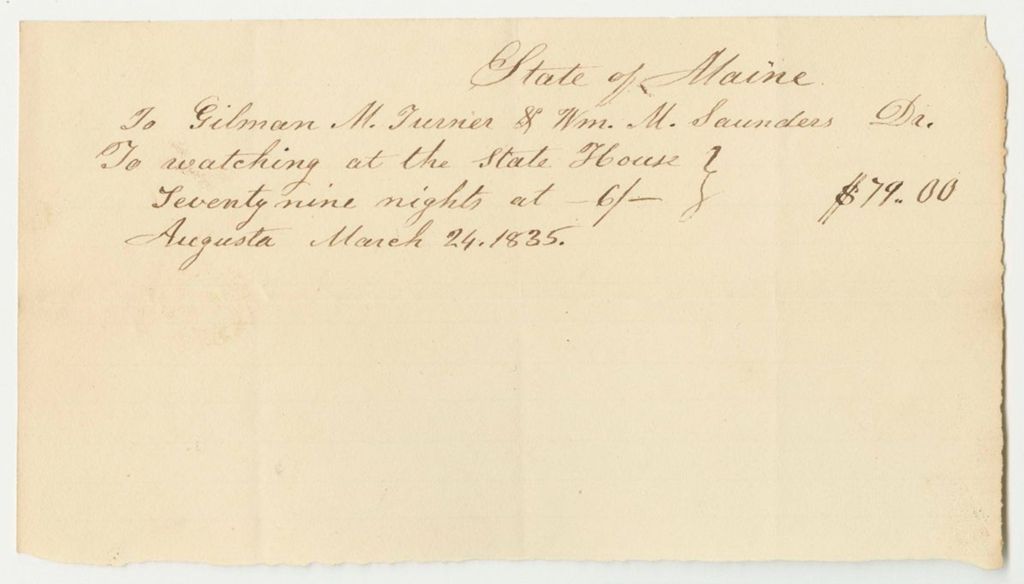 State of Maine
To Gilman M. Turner & Wm. M. Saunders Dr.
To watching at the State House
Seventy nine nights at - 6/- $79.. 00
Augusta March 24. 1835.